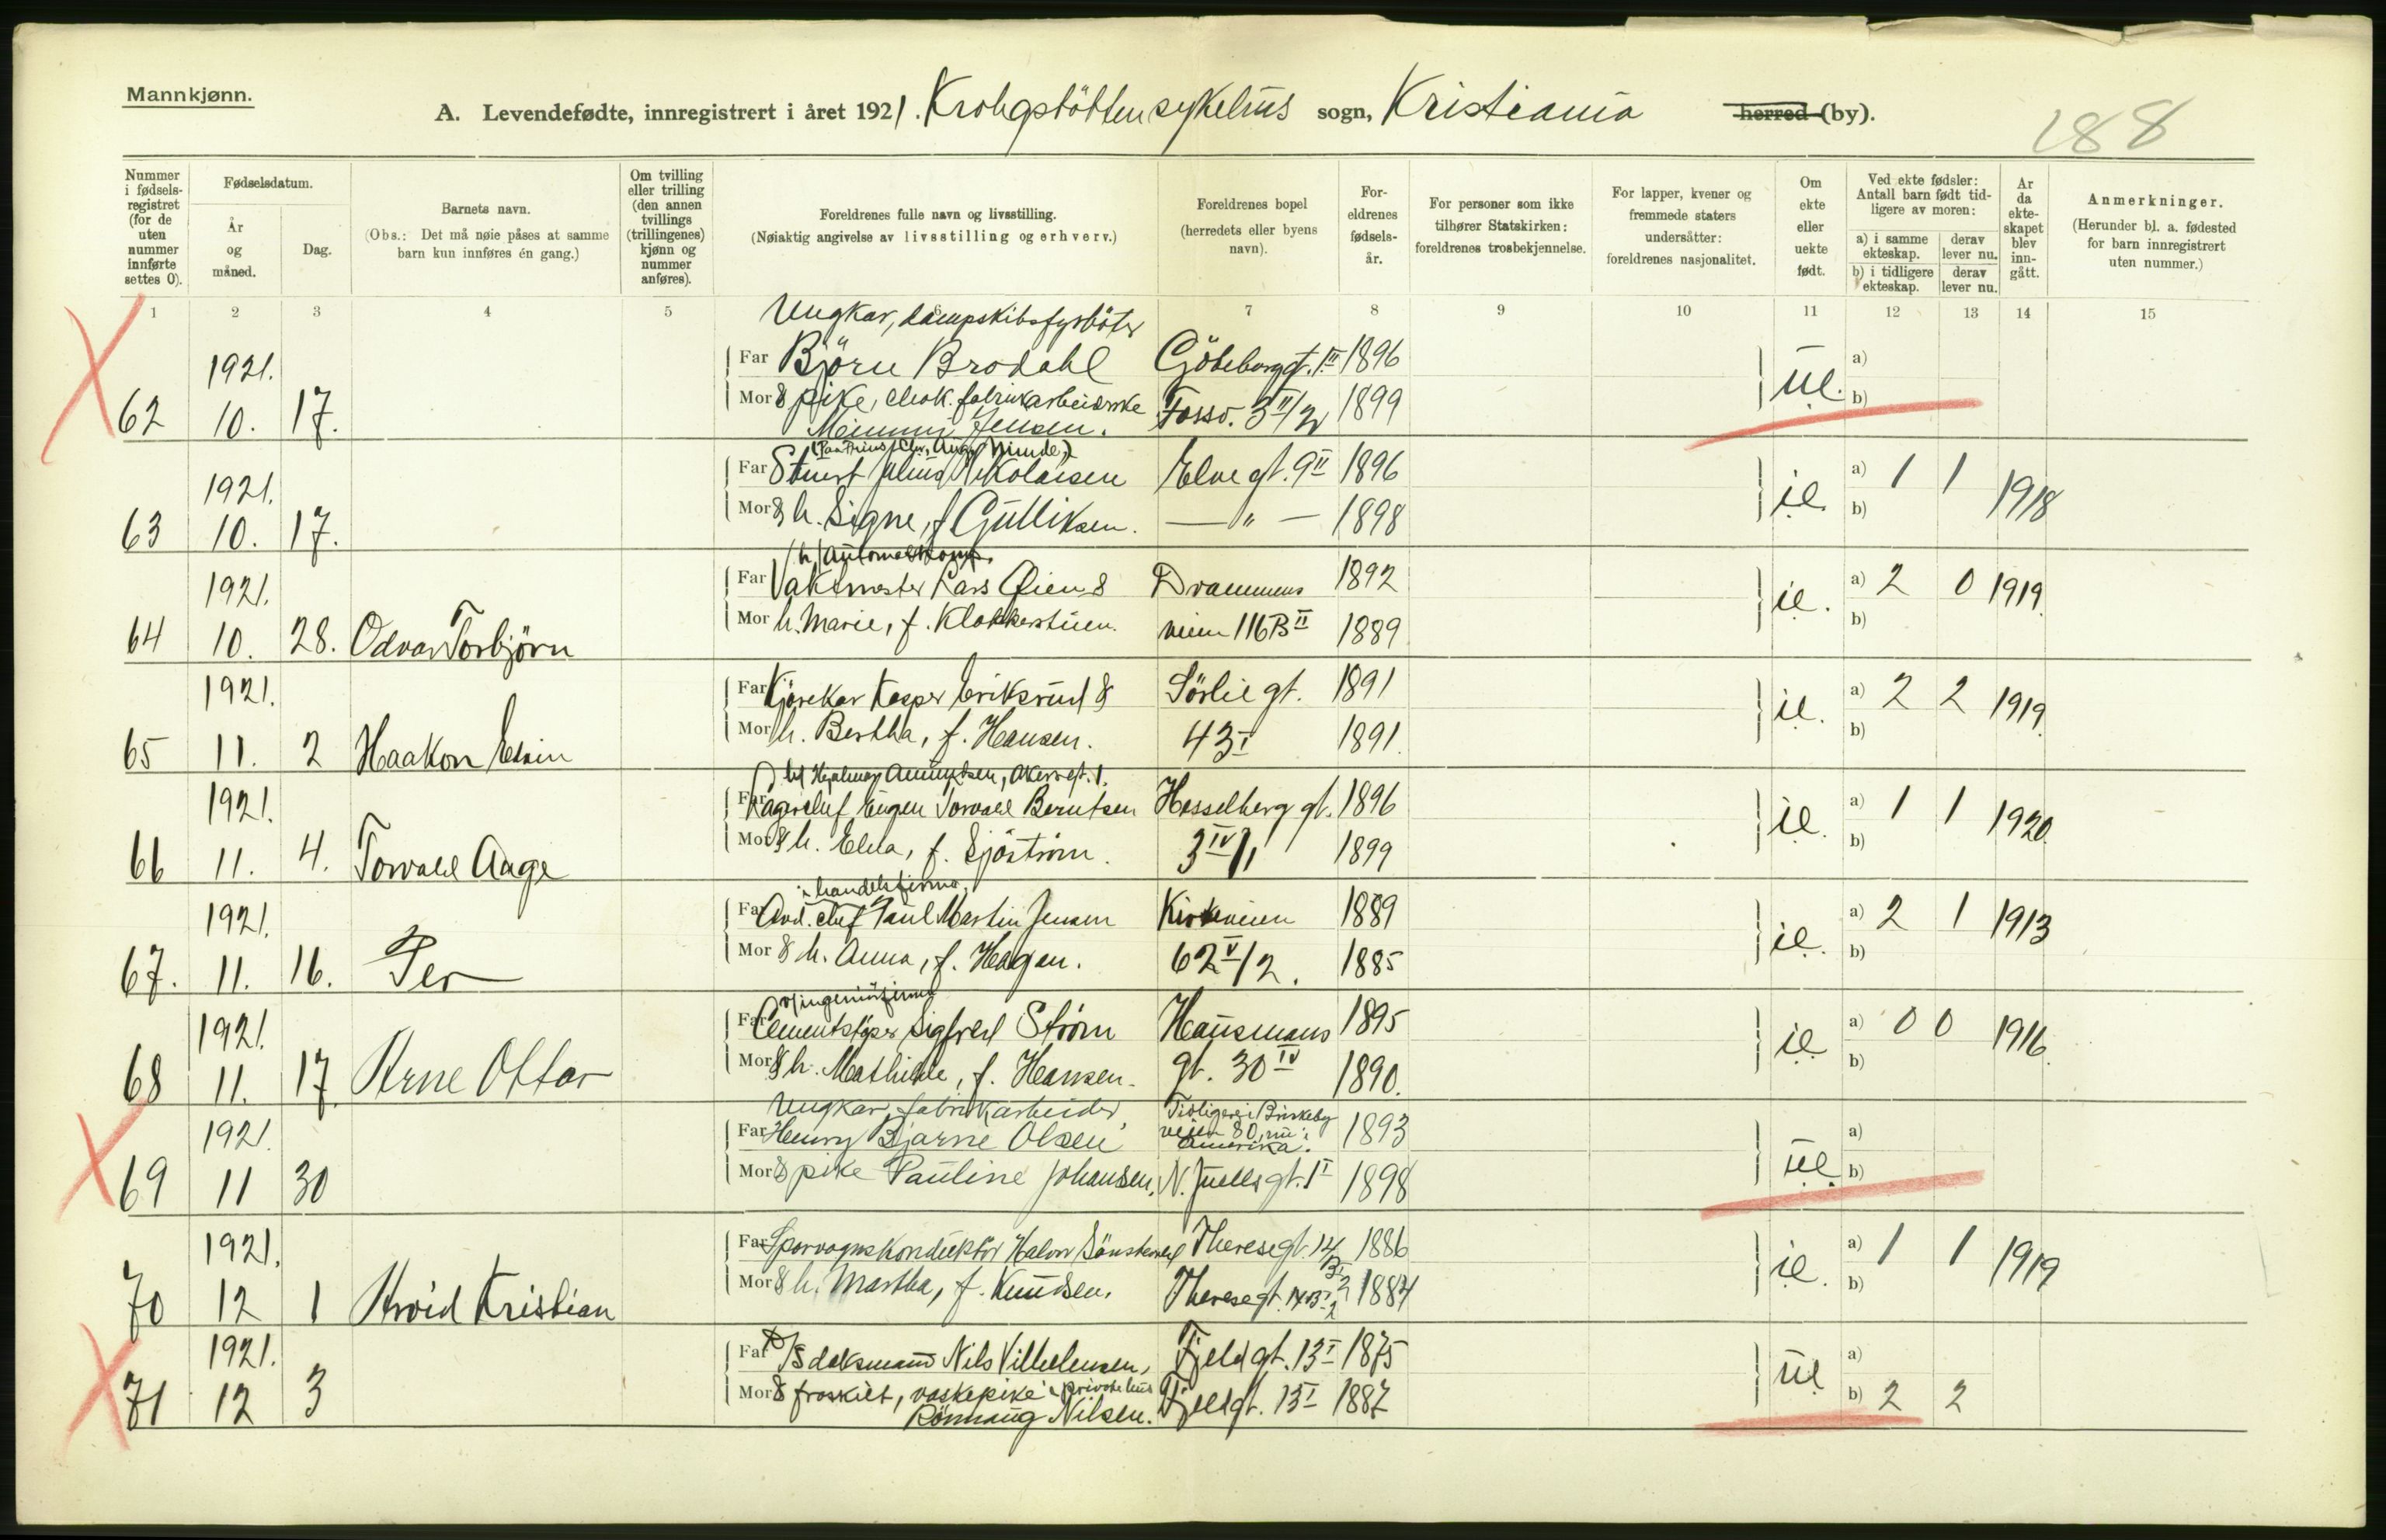 Mannkjønn.
A. Levendefødte, innregistrert i året 1921. Krohgstötten sykehus sogn, Kristiania herred (by).
188
Nummer i fødsels-registret (for de uten nummer innførte settes 0).
Fødselsdatum.
År og måned.
Dag.
Barnets navn.
(Obs.: Det må nøie påses at samme barn kun innføres én gang.)
Om tvilling eller trilling (den annen tvillings (trillingenes) kjønn og nummer anføres).
Foreldrenes fulle navn og livsstilling.
(Nøiaktig angivelse av livsstilling og erhverv.)
Foreldrenes bopel (herredets eller byens navn).
For-eldrenes fødsels-år.
For personer som ikke tilhører Statskirken: foreldrenes trosbekjennelse.
For lapper, kvener og fremmede staters undersåtter: foreldrenes nasjonalitet.
Om ekte eller uekte født.
Ved ekte fødsler: Antall barn født tid-ligere av moren:
a) i samme ekteskap.
derav lever nu.
b) i tidligere ekteskap.
derav lever nu.
Ar da ekte-skapet blev inn-gått.
Anmerkninger.
(Herunder bl. a. fødested for barn innregistrert uten nummer.)
1 2 3 4 5 7 8 9 10 11 12 13 14 15
Ungkar, dampskibsfyrböter
1921. Far Björn Brodahl Göteborggt. 1 III 1896 a)
62 10. 17. Mor & pike, chok. fabrikarbeiderske Fossv. 3 II/2 1899 ue. b)
Jensen.
1921. Far Nikolaisen Elvegt. 9 II 1896 a) 1 1
63 10. 17. Mor & h. Signe, f. Gulliksen. — " — 1898 ie. b) 1918
1921. Far Vaktmester Lars Øien & Drammens 1892 a) 2 0 1919.
64 10. 28. Odvar Torbjörn Mor h. Marie, f. Klokkerstuen. veien 116 B II 1889 ie. b)
1921. Far Kjörekar Kasper Eriksrud & Sörliegt. 1891 a) 2 2 1919.
65 11. 2 Haakon Edvin Mor h. Bertha, f. Hansen. 43 I 1891. ie. b)
Hjalmar Amundsen, Akersgt. 1.
1921. Far Lagerchef Eugen Torvald Berntsen Hesselberggt. 1896 a) 1 1 1920.
66 11. 4. Torvald Aage Mor & h. Ella, f. Sjöström. 3 IV/1 1899 ie. b)
i handelsfirma,
1921. Far Avd. chef Paul Martin Jensen Kirkeveien 1889 a) 2 1 1913
67. 11. 16. Per Mor & h. Anna, f. Hagen. 62 V/2. 1885 ie. b)
v/ingeniörfirma
1921. Far Cementstöper Sigfred Ström Hausmans 1895 a) 0 0 1916.
68 11. 17. Arne Ottar Mor & h. Mathilde, f. Hansen. gt. 30 IV 1890. ie. b)
Ungkar, fabrikkarbeider Tidligere i Briskeby
1921. Far Henry Bjarne Olsen veien 80, nu i Amerika. 1893 a)
69 11 30 Mor & pike Pauline Johansen, N. Juellsgt. 1 I 1898 ue. b)
1921. Far Sporvognskonduktör Halvor Theresegt. 14 1886 a) 1 1 1919
70 12 1 Arvid Kristian Mor & h. Martha, f. Knudsen. Theresegt. 14 B I 2 1884 ie. b)
1921. Far Nils Vilhelmsen, Fjeldgt. 13 I 1875 a)
71 12 3 Mor & fraskilt, vaskepike i privatehus Fjeldgt. 13 I 1887 ue b) 2 2
Rönnaug Nilsen.